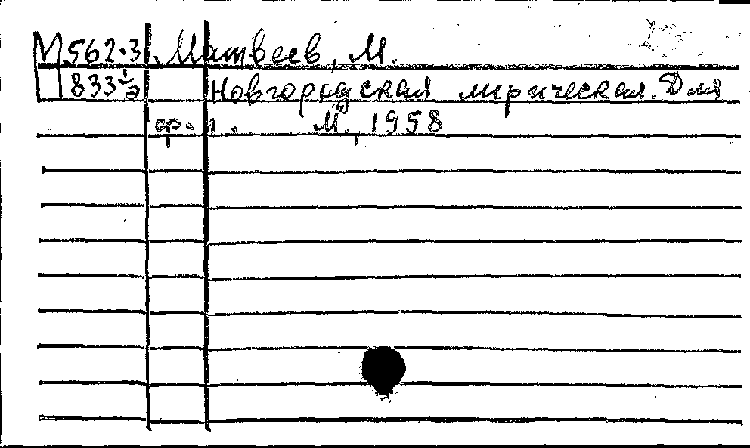 М562-3 Матвеев, М.
833 1/э Новгородская лирическая. Для
ф-п. М., 1958